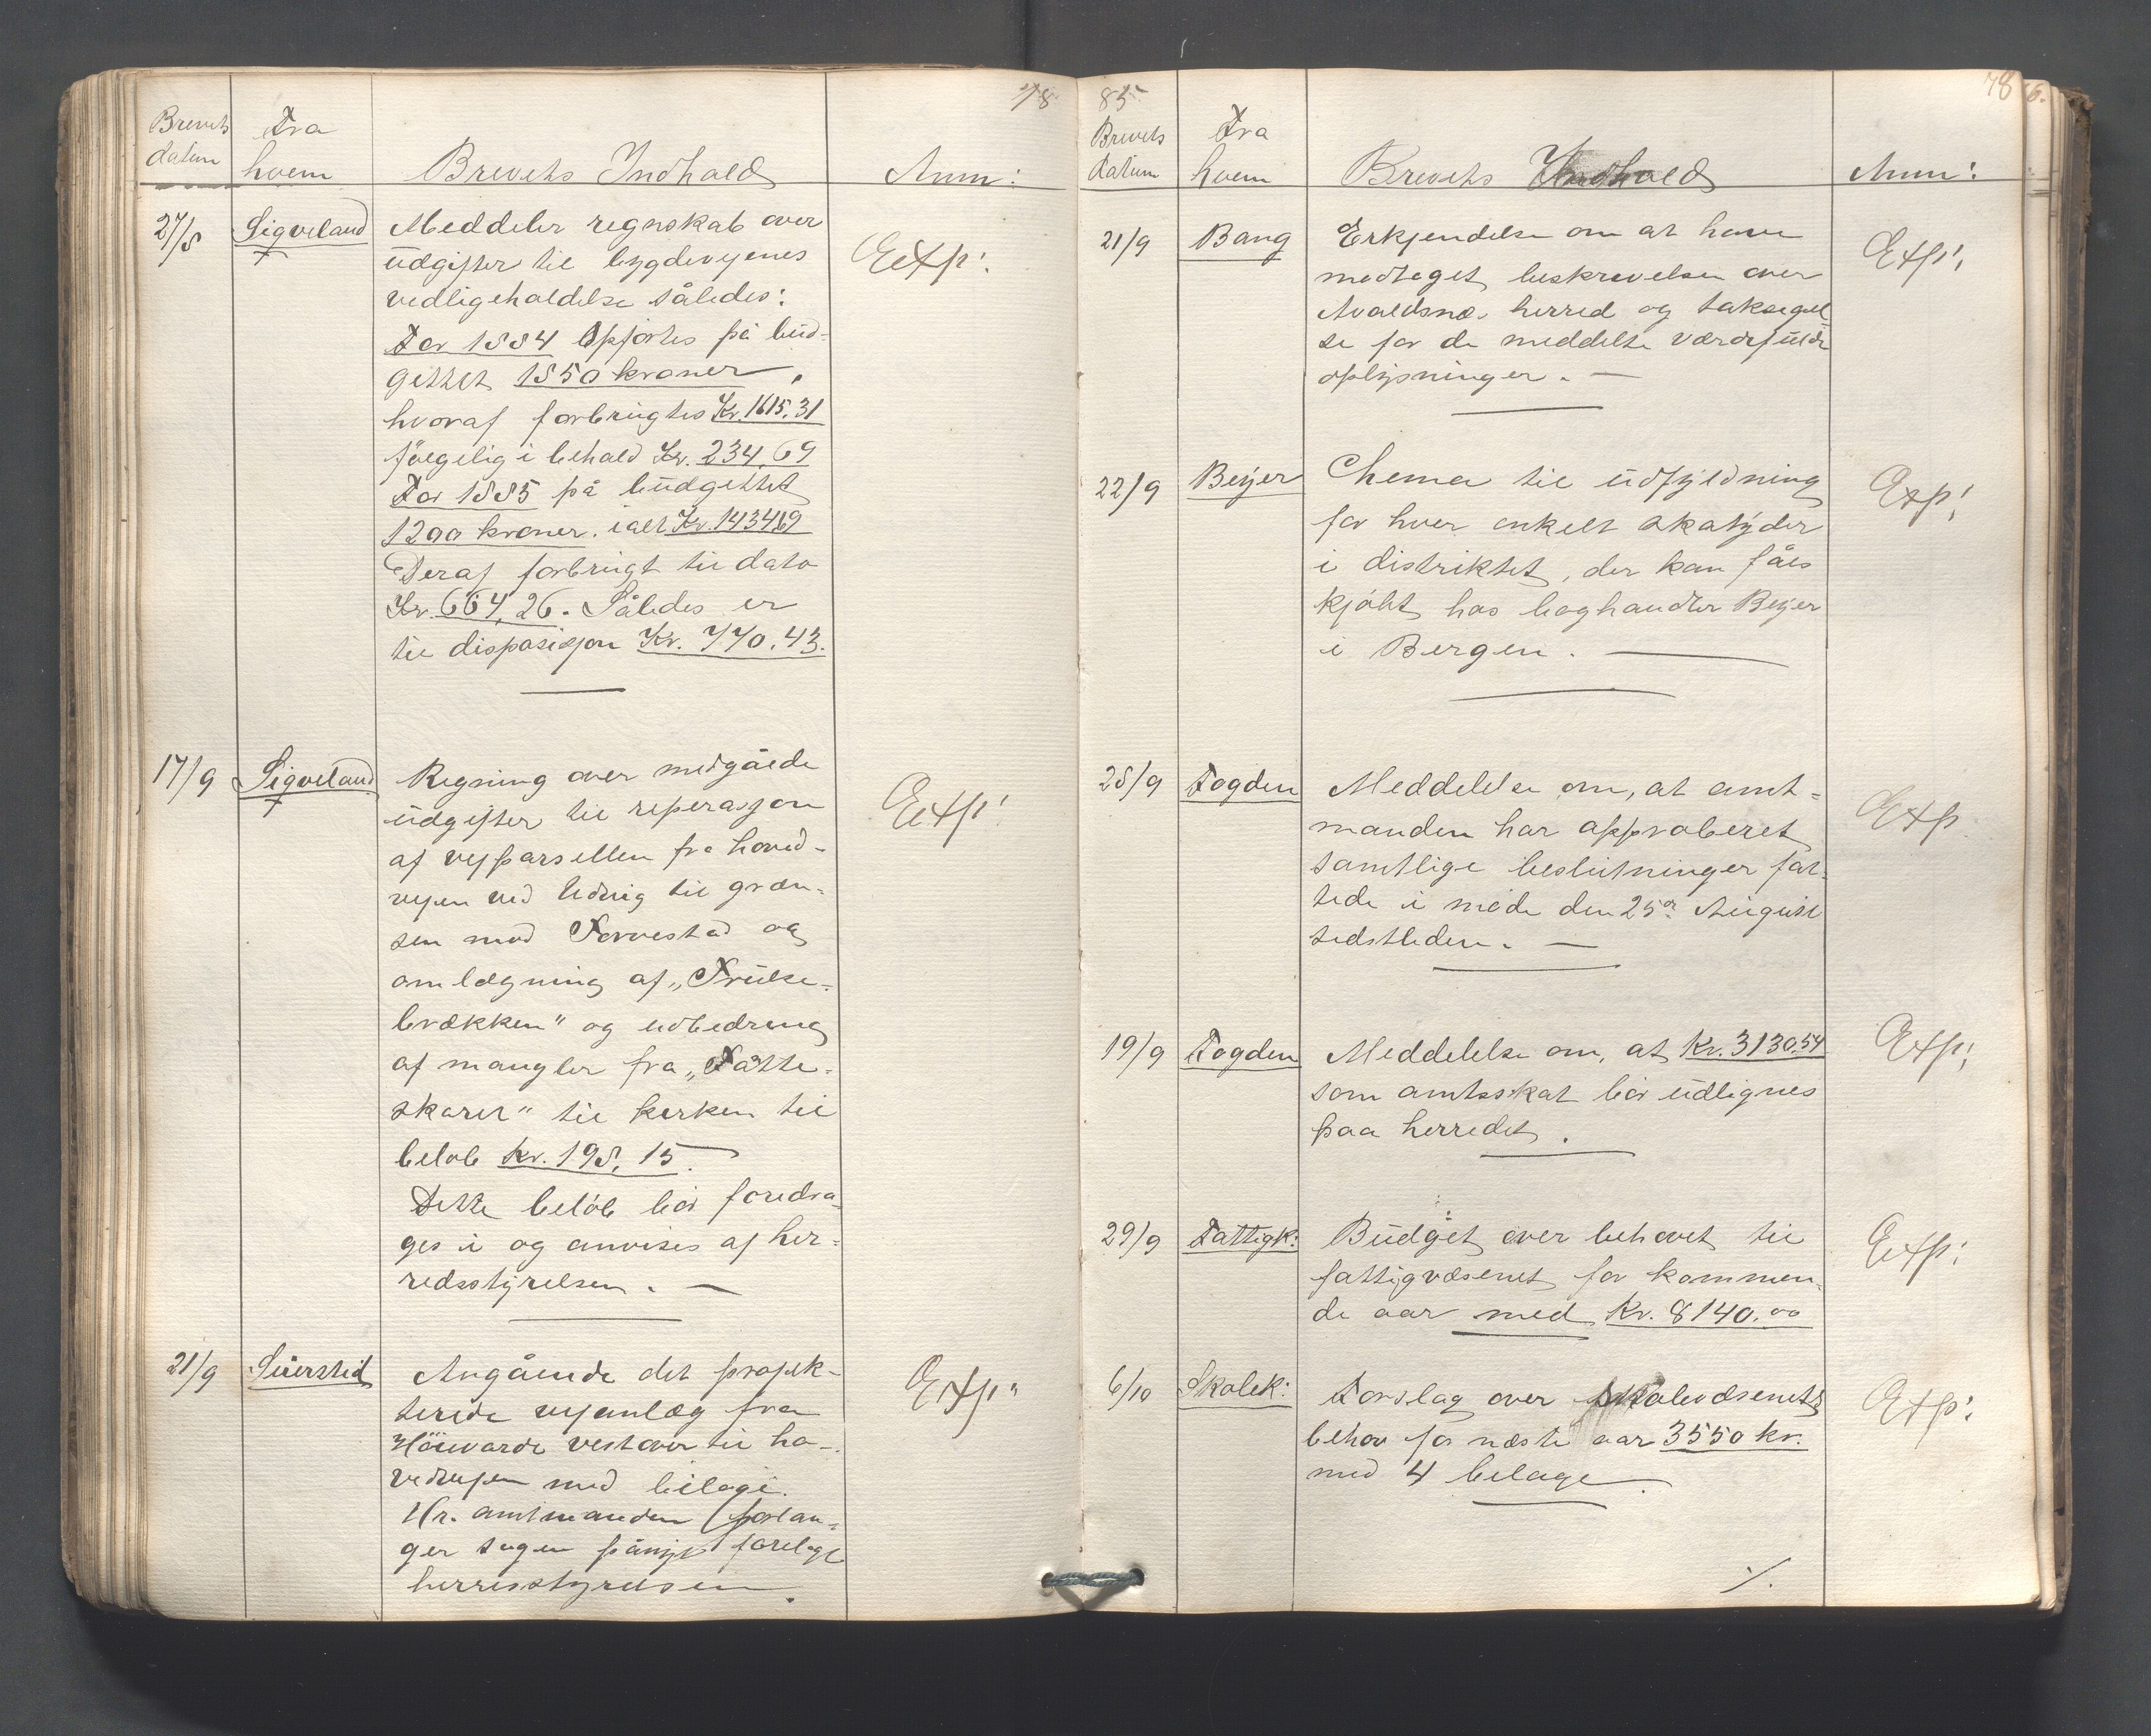 78
Brevets datum
Fra hvem
Brevets Indhold
Anm:
27/8
Sigveland
Meddeler regnskab over
udgifter til bygdevejenes
vedligeholdelse således:
For 1884 Opførtes på bud-
gettet 1850 kroner,
hvoraf forbrugtes Kr. 1615,31
følgelig i behold Kr. 234,69
For 1885 på budgettet
1200 kroner. ialt Kr. 1434,69
Deraf forbrugt til dato
Kr. 664,26. Således er
til disposisjon Kr. 770,43.
Exp:
17/9
Sigveland
Regning over medgåede
udgifter til reperasjon
af vejparsellen fra hoved-
vejen ved til græn-
sen mod Torvestad og
omlægning af „
brækken" og udbedring
af mangler fra „
skaret" til kirken til
beløb kr. 198,15.
Dette beløb bør foredra-
ges i og anvises af her-
redsstyrelsen. —
Exp:
21/9
Angående det projek-
terede vejanlæg fra
vestover til ho-
vedvejen med bilage.
Hr. amtmanden forlan-
ger sagen pånyt forelagt
herredsstyrelsen.
Exp:
85
78
6.
Brevets datum
Fra hvem
Brevets Indhold
Anm:
21/9
Bang
Erkjendelse om at have
modtaget beskrivelsen over
Avaldsnæs herred og taksigel-
se for de meddelte værdifulde
oplysninger. —
Exp:
22/9
Beyer
Chema til udfyldning
for hver enkelt skatyder
i distriktet, der kan fåes
kjøbt hos boghandler Beyer
i Bergen. —
Exp:
28/9
Fogden
Meddelelse om, at amt-
manden har approberet
samtlige beslutninger fat-
tede i møde den 25de August
sidstleden. —
Exp.
19/9
Fogden
Meddelelse om, at Kr. 3130.54
som amtsskat bør udlignes
paa herredet.
Exp:
29/9
Fattigk:
Budget over behovet til
fattigvæsenet for kommen-
de aar med Kr. 8140.00
Exp:
6/10
Skolek:
Forslag over skolevæsenets
behov for næste aar 3550 kr.
med 4 belage.
Exp:
./.